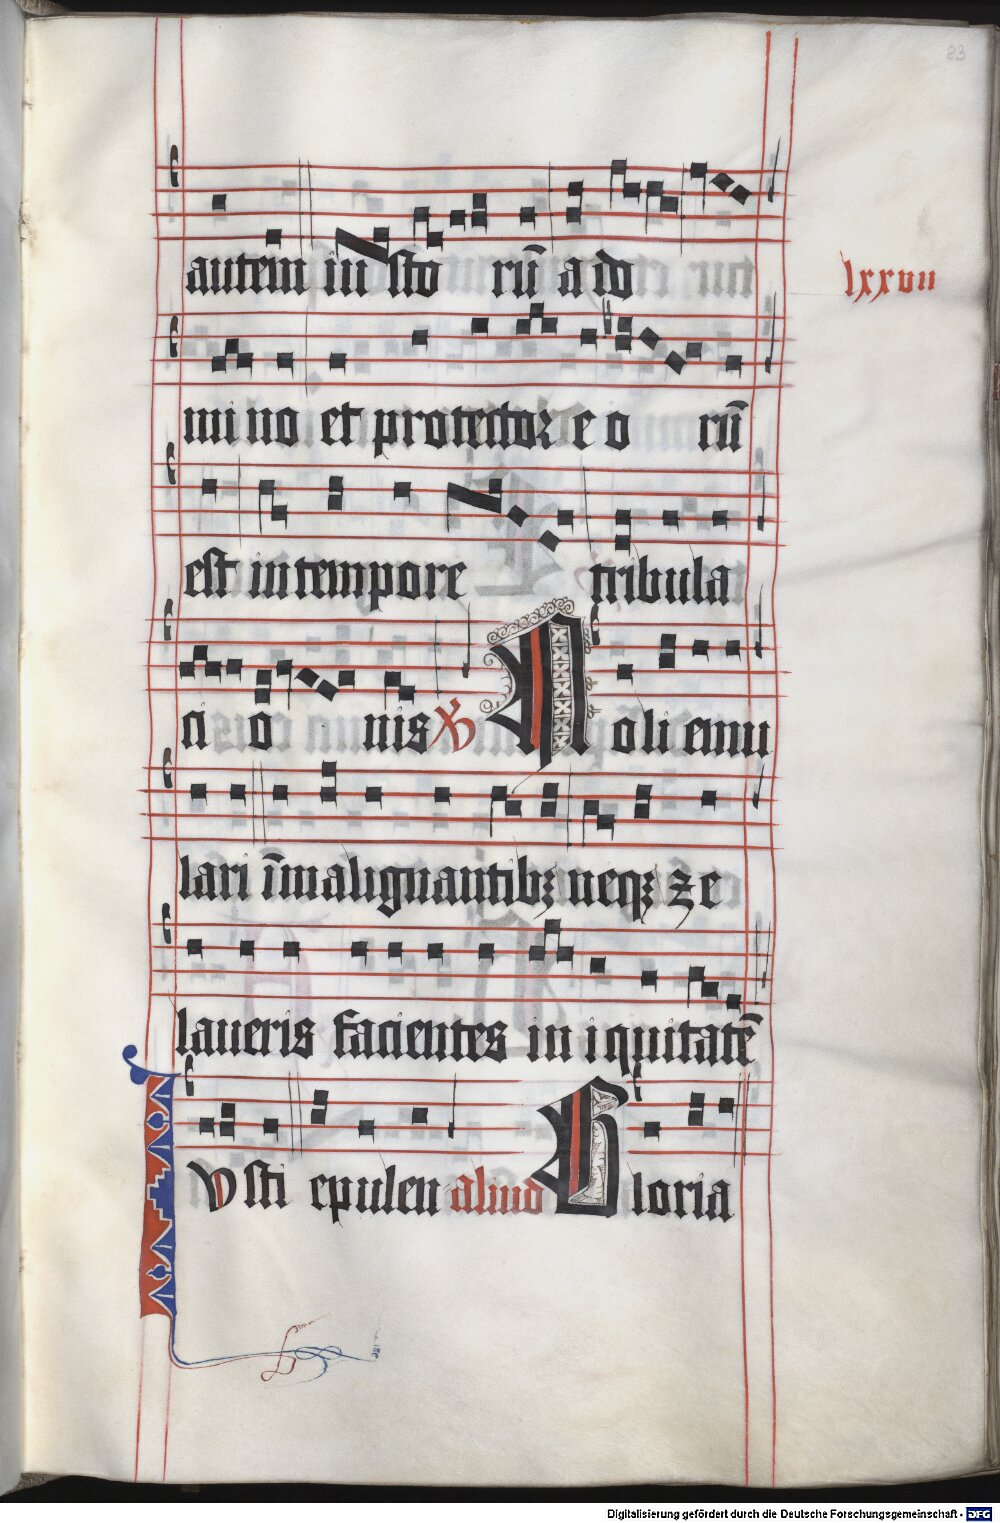 83
autem iu sto rū a do
lxxvii
mi no et protector e o rū
est in tempore tribula
ci o nis Noli emu
lari ī malignantibꝫ neqꝫ ze
laueris facientes in iquitatē
Iusti epulen aliud Gloria
Digitalisierung gefördert durch die Deutsche Forschungsgemeinschaft - DFG